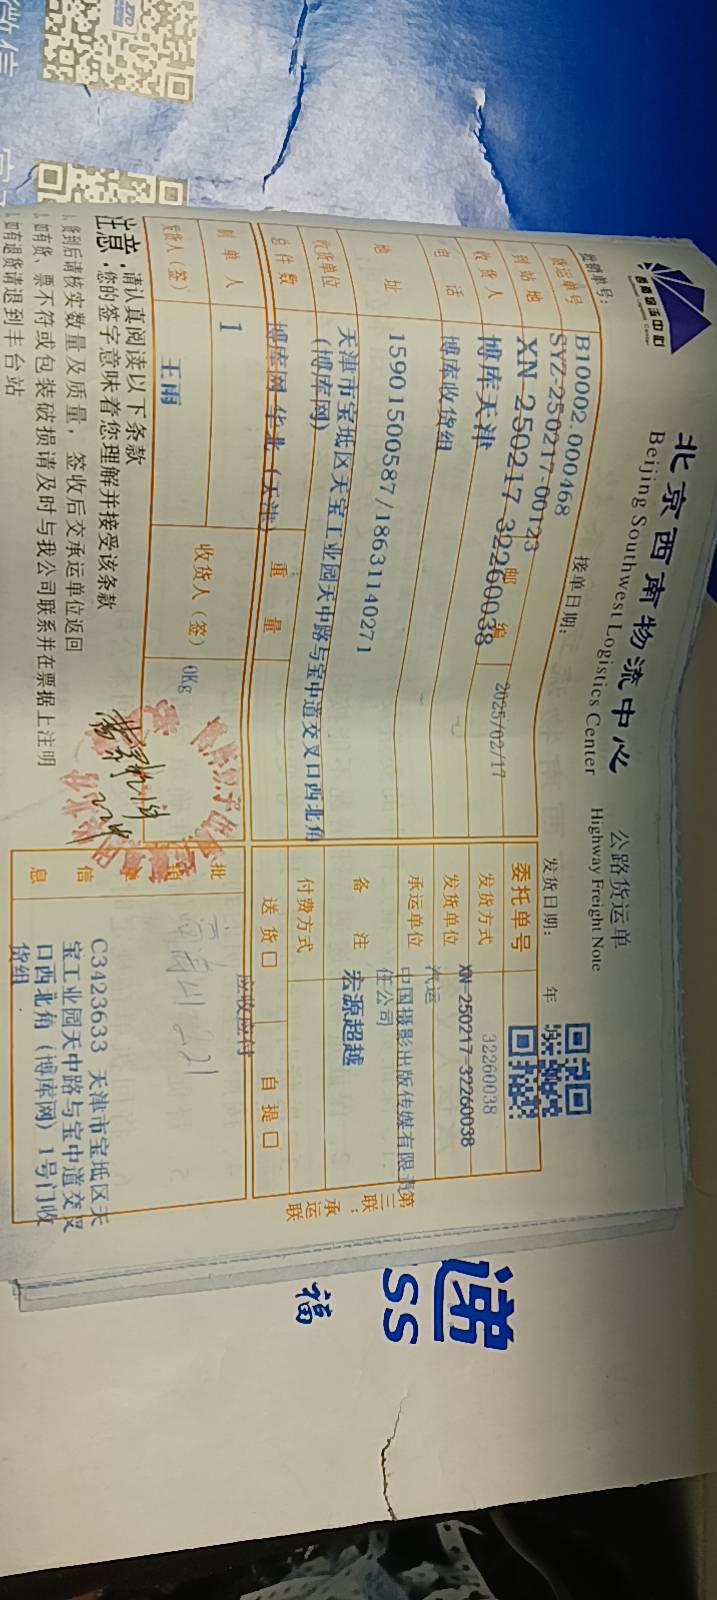 西南物流中心
北京西南物流中心
Beijing Southwest Logistics Center
公路货运单
Highway Freight Note
B10002.000468
接单日期:
发货日期: 年
货运单号
SYZ-250217-00123
到站地
XN-250217-32260038
邮编
2025/02/17
委托单号
32260038
收货人
博库天津
发货方式
XN-250217-32260038
电话
博库收货组
发货单位
汽运
地址
15901500587/18631140271
承运单位
中国摄影出版传媒有限责任公司
收货单位
天津市宝坻区天宝工业园天中路与宝中道交叉口西北角
(博库网)
备注
宏源超越
总件数
博库网-华北(天津)
重量
付费方式
制单人
1
送货□
自提□
应收应付
发货人(签)
王雨
收货人(签)
0Kg
批销单信息
C3423633 天津市宝坻区天
宝工业园天中路与宝中道交叉
口西北角(博库网)1号门收
货组
第三联:承运联
注意:请认真阅读以下条款
您的签字意味着您理解并接受该条款
1.货到后请核实数量及质量,签收后交承运单位返回
2.如有货、票不符或包装破损请及时与我公司联系并在票据上注明
3.如有退货请退到丰台站
递
SS
福
微信